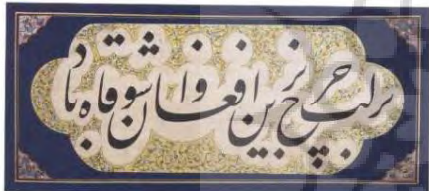 بر لب چرخ برین افغان واشوقاه باد